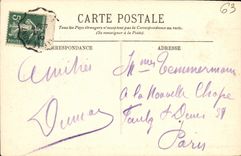 63
CARTE POSTALE
Tous les Pays étrangers n'acceptent pas la Correspondance au recto
(Se renseigner à la Poste)
CORRESPONDANCE
ADRESSE
Amitiés
Mme Temmermann
A la Nouvelle Chope
Faubg St Denis
Paris